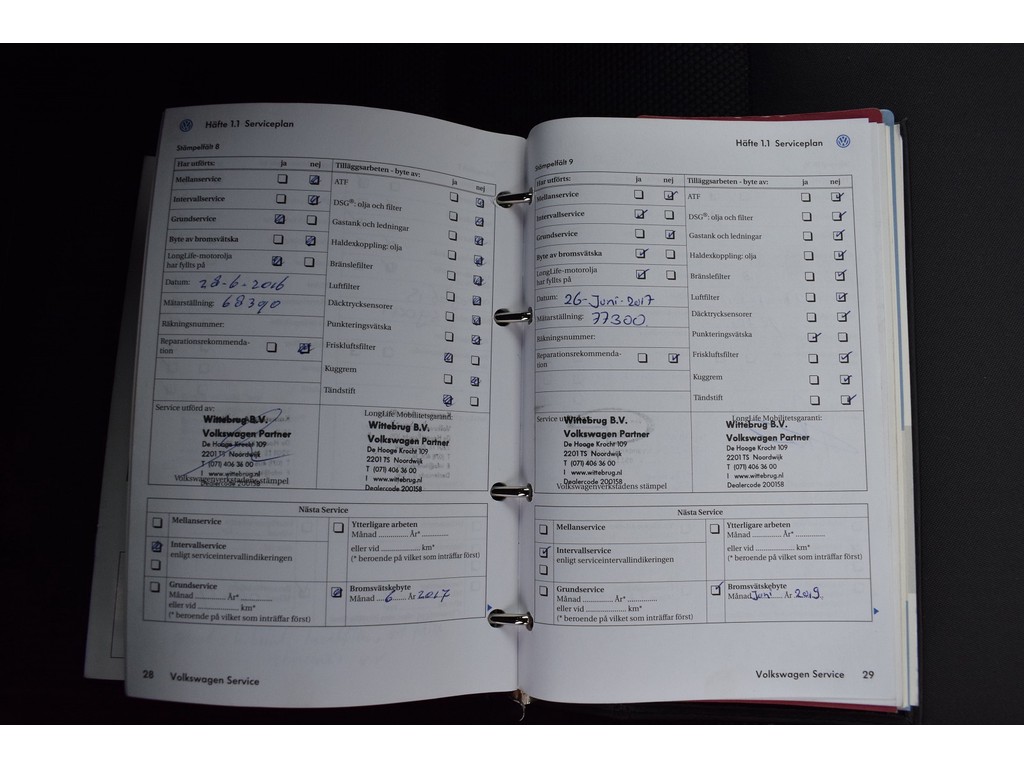 Häfte 1.1 Serviceplan
Stämpelfält 8
Har utförts: ja nej
Mellanservice
Intervallservice
Grundservice
Byte av bromsvätska
LongLife-motorolja
har fyllts på
Datum: 28-6-2016
Mätarställning: 68390
Räkningsnummer:
Reparationsrekommenda-
tion
Tilläggsarbeten - byte av: ja nej
ATF
DSG®: olja och filter
Gastank och ledningar
Haldexkoppling: olja
Bränslefilter
Luftfilter
Däcktrycksensorer
Punkteringsvätska
Friskluftsfilter
Kuggrem
Tändstift
Service utförd av:
Wittebrug B.V.
Volkswagen Partner
De Hooge Krocht 109
2201 TS Noordwijk
T (071) 406 36 00
I www.wittebrug.nl
Dealercode 200158
Volkswagenverkstadens stämpel
LongLife Mobilitetsgaranti:
Wittebrug B.V.
Volkswagen Partner
De Hooge Krocht 109
2201 TS Noordwijk
T (071) 406 36 00
I www.wittebrug.nl
Dealercode 200158
Nästa Service
Mellanservice
Intervallservice
enligt serviceintervallindikeringen
Grundservice
Månad ............ År* ............
eller vid ............ km*
(* beroende på vilket som inträffar först)
Ytterligare arbeten
Månad ............ År* ............
eller vid ............ km*
(* beroende på vilket som inträffar först)
Bromsvätskebyte
Månad 6 År 2017
28 Volkswagen Service
Häfte 1.1 Serviceplan
Stämpelfält 9
Har utförts: ja nej
Mellanservice
Intervallservice
Grundservice
Byte av bromsvätska
LongLife-motorolja
har fyllts på
Datum: 26-Juni-2017
Mätarställning: 77300
Räkningsnummer:
Reparationsrekommenda-
tion
Tilläggsarbeten - byte av: ja nej
ATF
DSG®: olja och filter
Gastank och ledningar
Haldexkoppling: olja
Bränslefilter
Luftfilter
Däcktrycksensorer
Punkteringsvätska
Friskluftsfilter
Kuggrem
Tändstift
Service utförd av:
Wittebrug B.V.
Volkswagen Partner
De Hooge Krocht 109
2201 TS Noordwijk
T (071) 406 36 00
I www.wittebrug.nl
Dealercode 200158
Volkswagenverkstadens stämpel
LongLife Mobilitetsgaranti:
Wittebrug B.V.
Volkswagen Partner
De Hooge Krocht 109
2201 TS Noordwijk
T (071) 406 36 00
I www.wittebrug.nl
Dealercode 200158
Nästa Service
Mellanservice
Intervallservice
enligt serviceintervallindikeringen
Grundservice
Månad ............ År* ............
eller vid ............ km*
(* beroende på vilket som inträffar först)
Ytterligare arbeten
Månad ............ År* ............
eller vid ............ km*
(* beroende på vilket som inträffar först)
Bromsvätskebyte
Månad Juni År 2019
Volkswagen Service 29